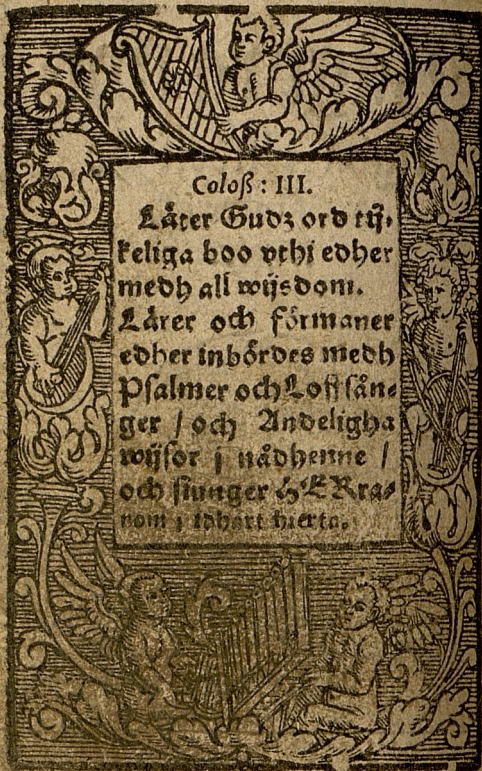 Coloß: III.
Låter Gudz ord rij-
keliga boo vthi edher
medh all wijsdom.
Lärer och förmaner
edher inbördes medh
Psalmer och Loffsån-
ger / och Andeligha
wijsor j nådhenne /
och siunger HERra-
nom j idhart hierta.